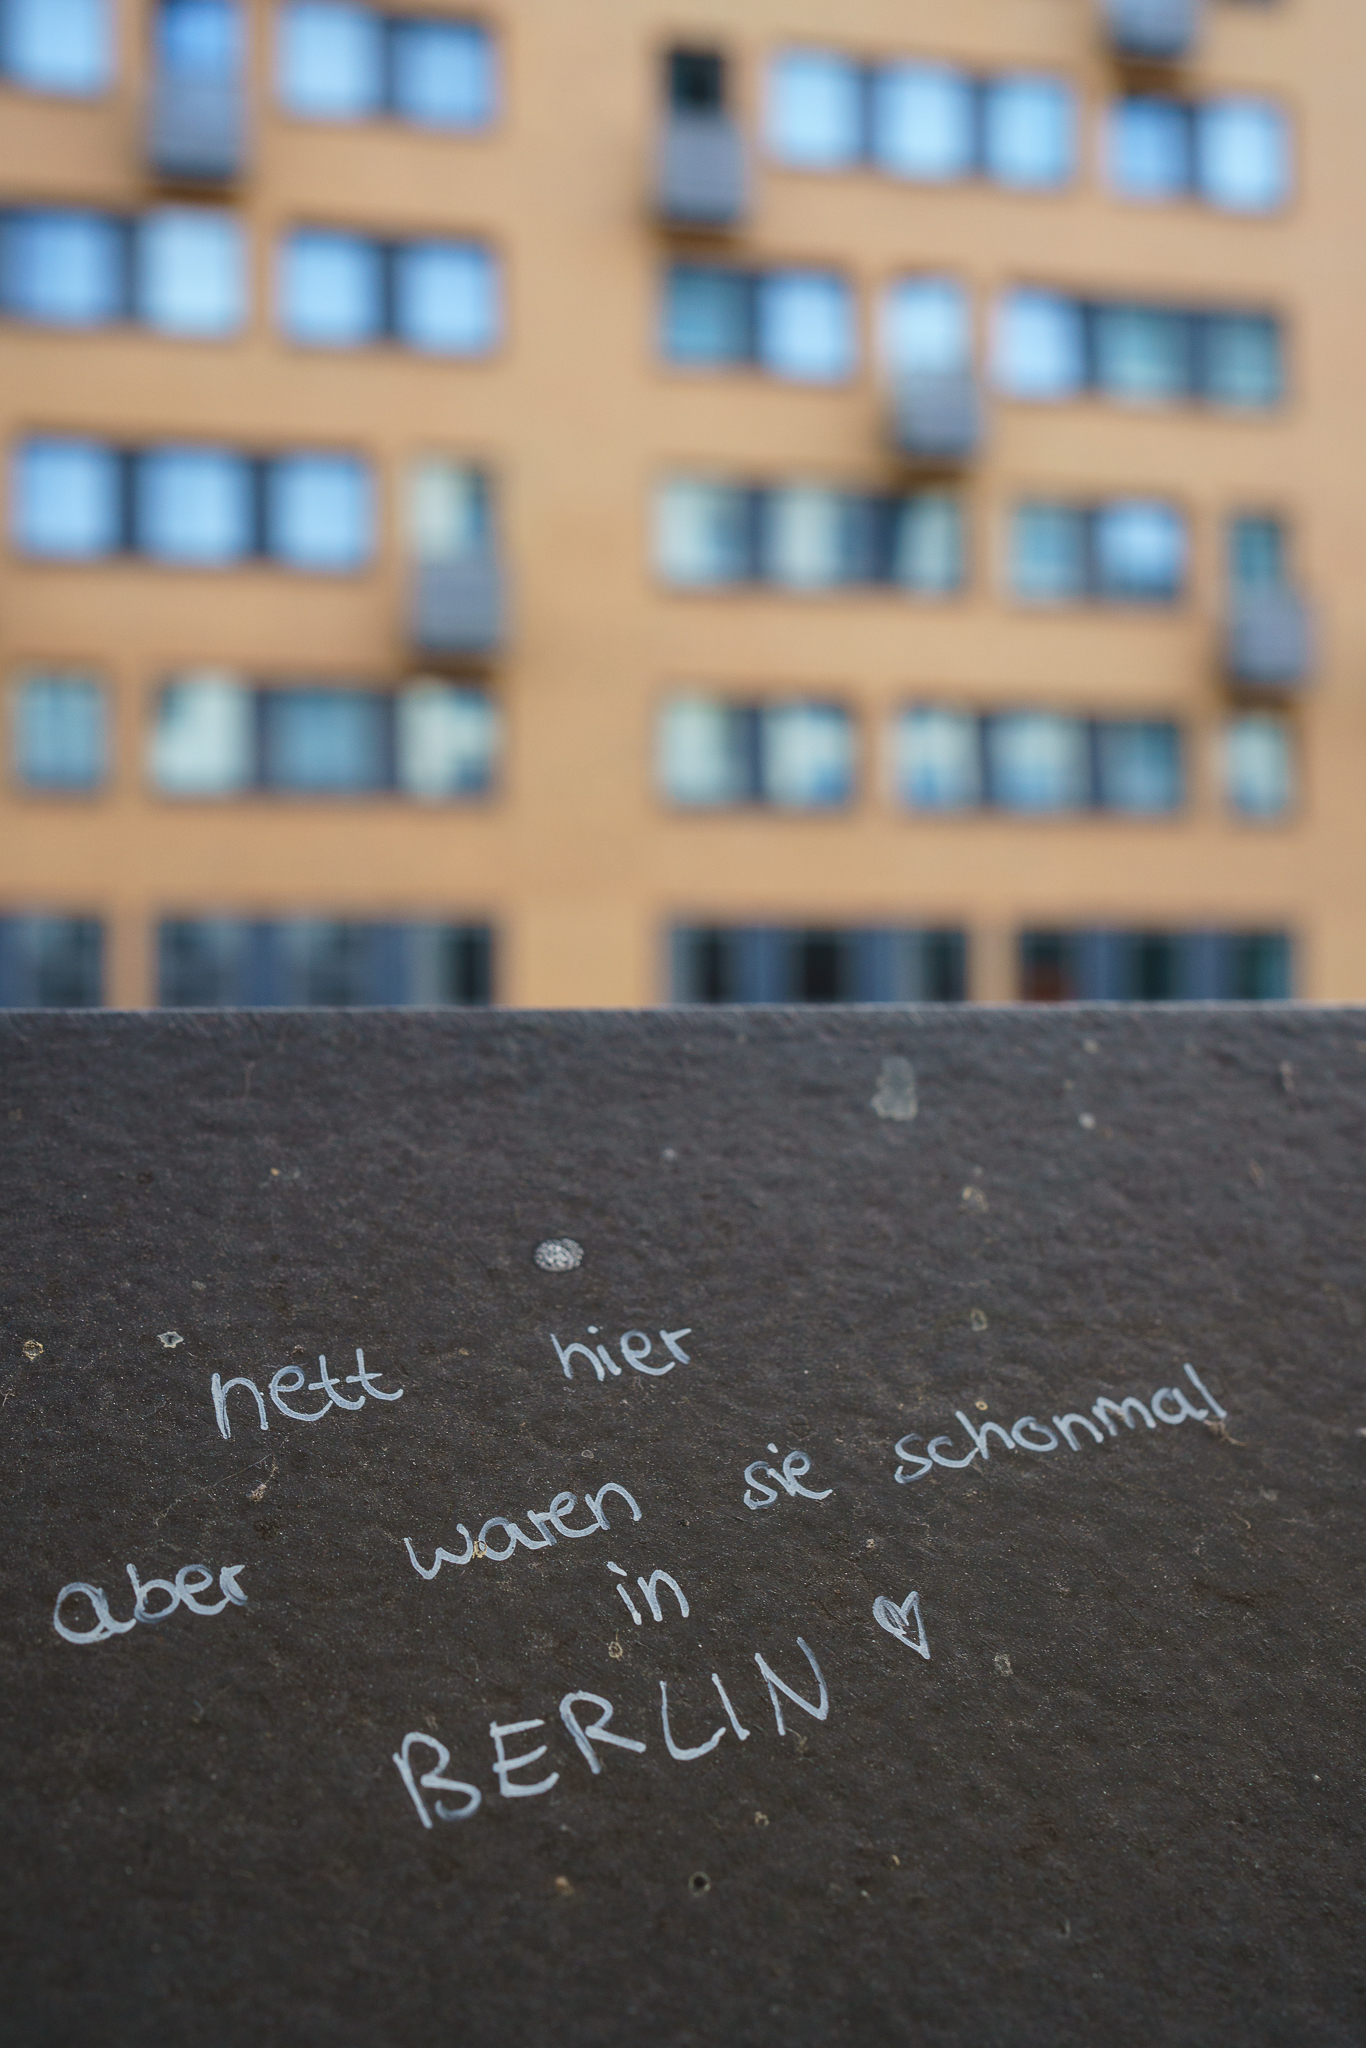 nett hier
aber waren sie schonmal
in
BERLIN ♡